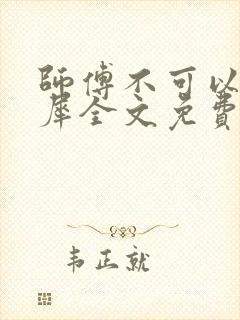 師傅不可以
犀全文免費
韦正就